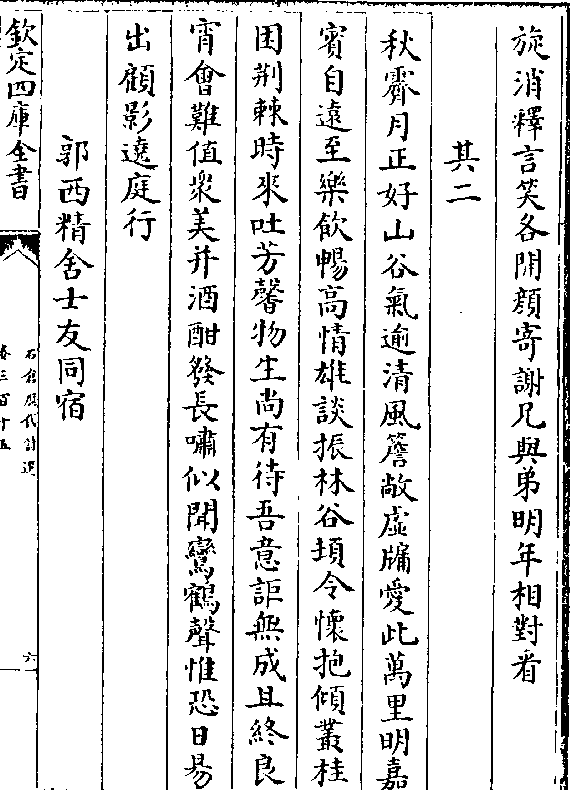 旋消釋言笑各開顔寄謝兄與弟明年相對看
其二
秋霽月正好山谷氣逾清風簷敞虛牖愛此萬里明嘉
賓自遠至樂飲暢高情雄談振林谷頓令懷抱傾叢桂
困荆棘時來吐芳馨物生尚有待吾意詎無成且終良
宵會難值衆美并酒酣發長嘯似聞鸞鶴聲惟恐日易
出顧影遶庭行
郭西精舍士友同宿
欽定四庫全書
石倉歷代詩選
卷三百十五
六